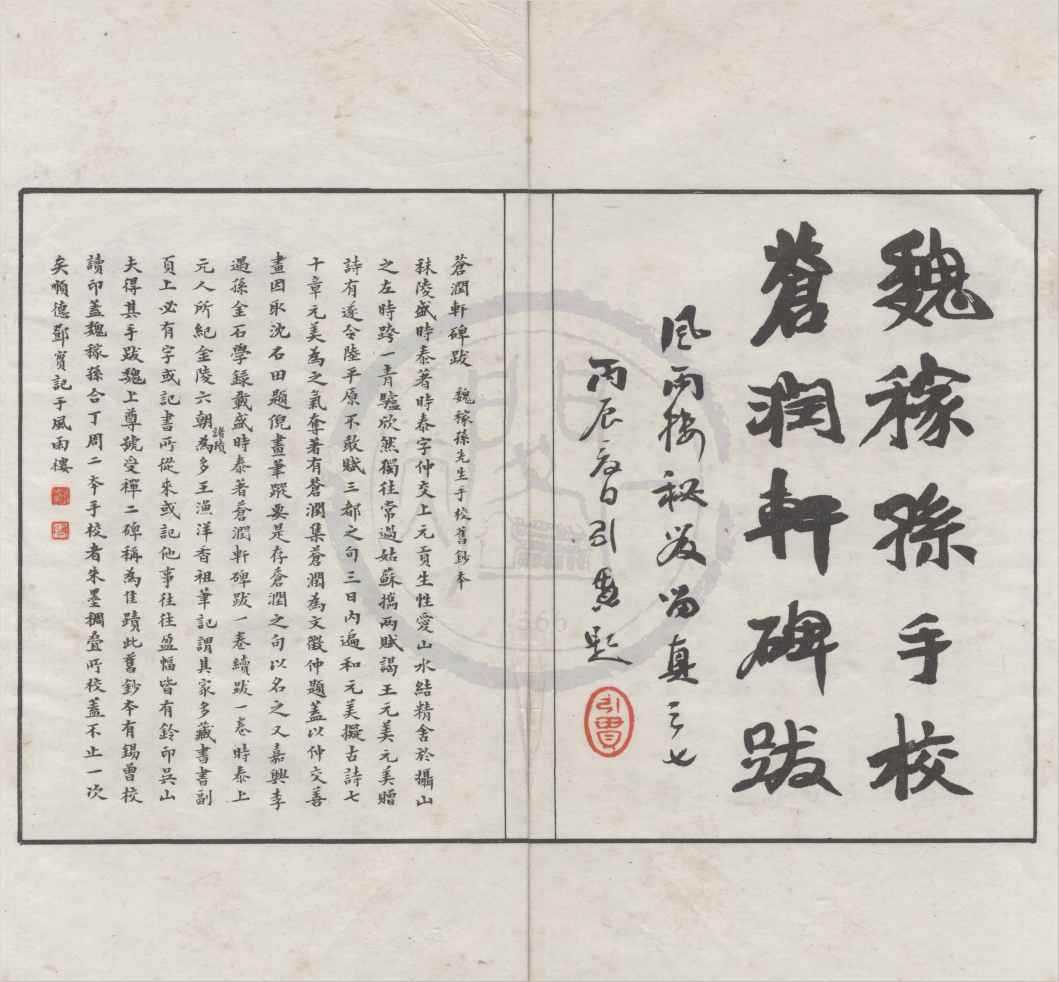 魏稼孫手校
蒼潤軒碑跋
風雨樓秘笈留真之七
丙辰日引題
蒼潤軒碑跋 魏稼孫先生手校舊鈔本
秣陵盛時泰著時泰字仲交上元貢生性愛山水結精舍於攝山
之左時跨一青驢欣然獨往常過姑蘇攜兩賦謁王元美元美贈
詩有遂令陸平原不敢賦三都之句三日內遍和元美擬古詩七
十章元美為之氣奪著有蒼潤集蒼潤為文徵仲題蓋以仲交善
畫因取沈石田題倪畫筆蹤要是存蒼潤之句以名之又嘉興李
遇孫金石學錄載盛時泰著蒼潤軒碑跋一卷續跋一卷時泰上
元人所紀金陵六朝諸蹟為多王漁洋香祖筆記謂其家多藏書書副
頁上必有字或記書所從來或記他事往往盈幅皆有鈐印吳山
夫得其手跋魏上尊號受禪二碑稱為佳蹟此舊鈔本有錫曾校
讀印蓋魏稼孫合丁周二本手校者朱墨稠疊所校蓋不止一次
矣順德鄧實記于風雨樓